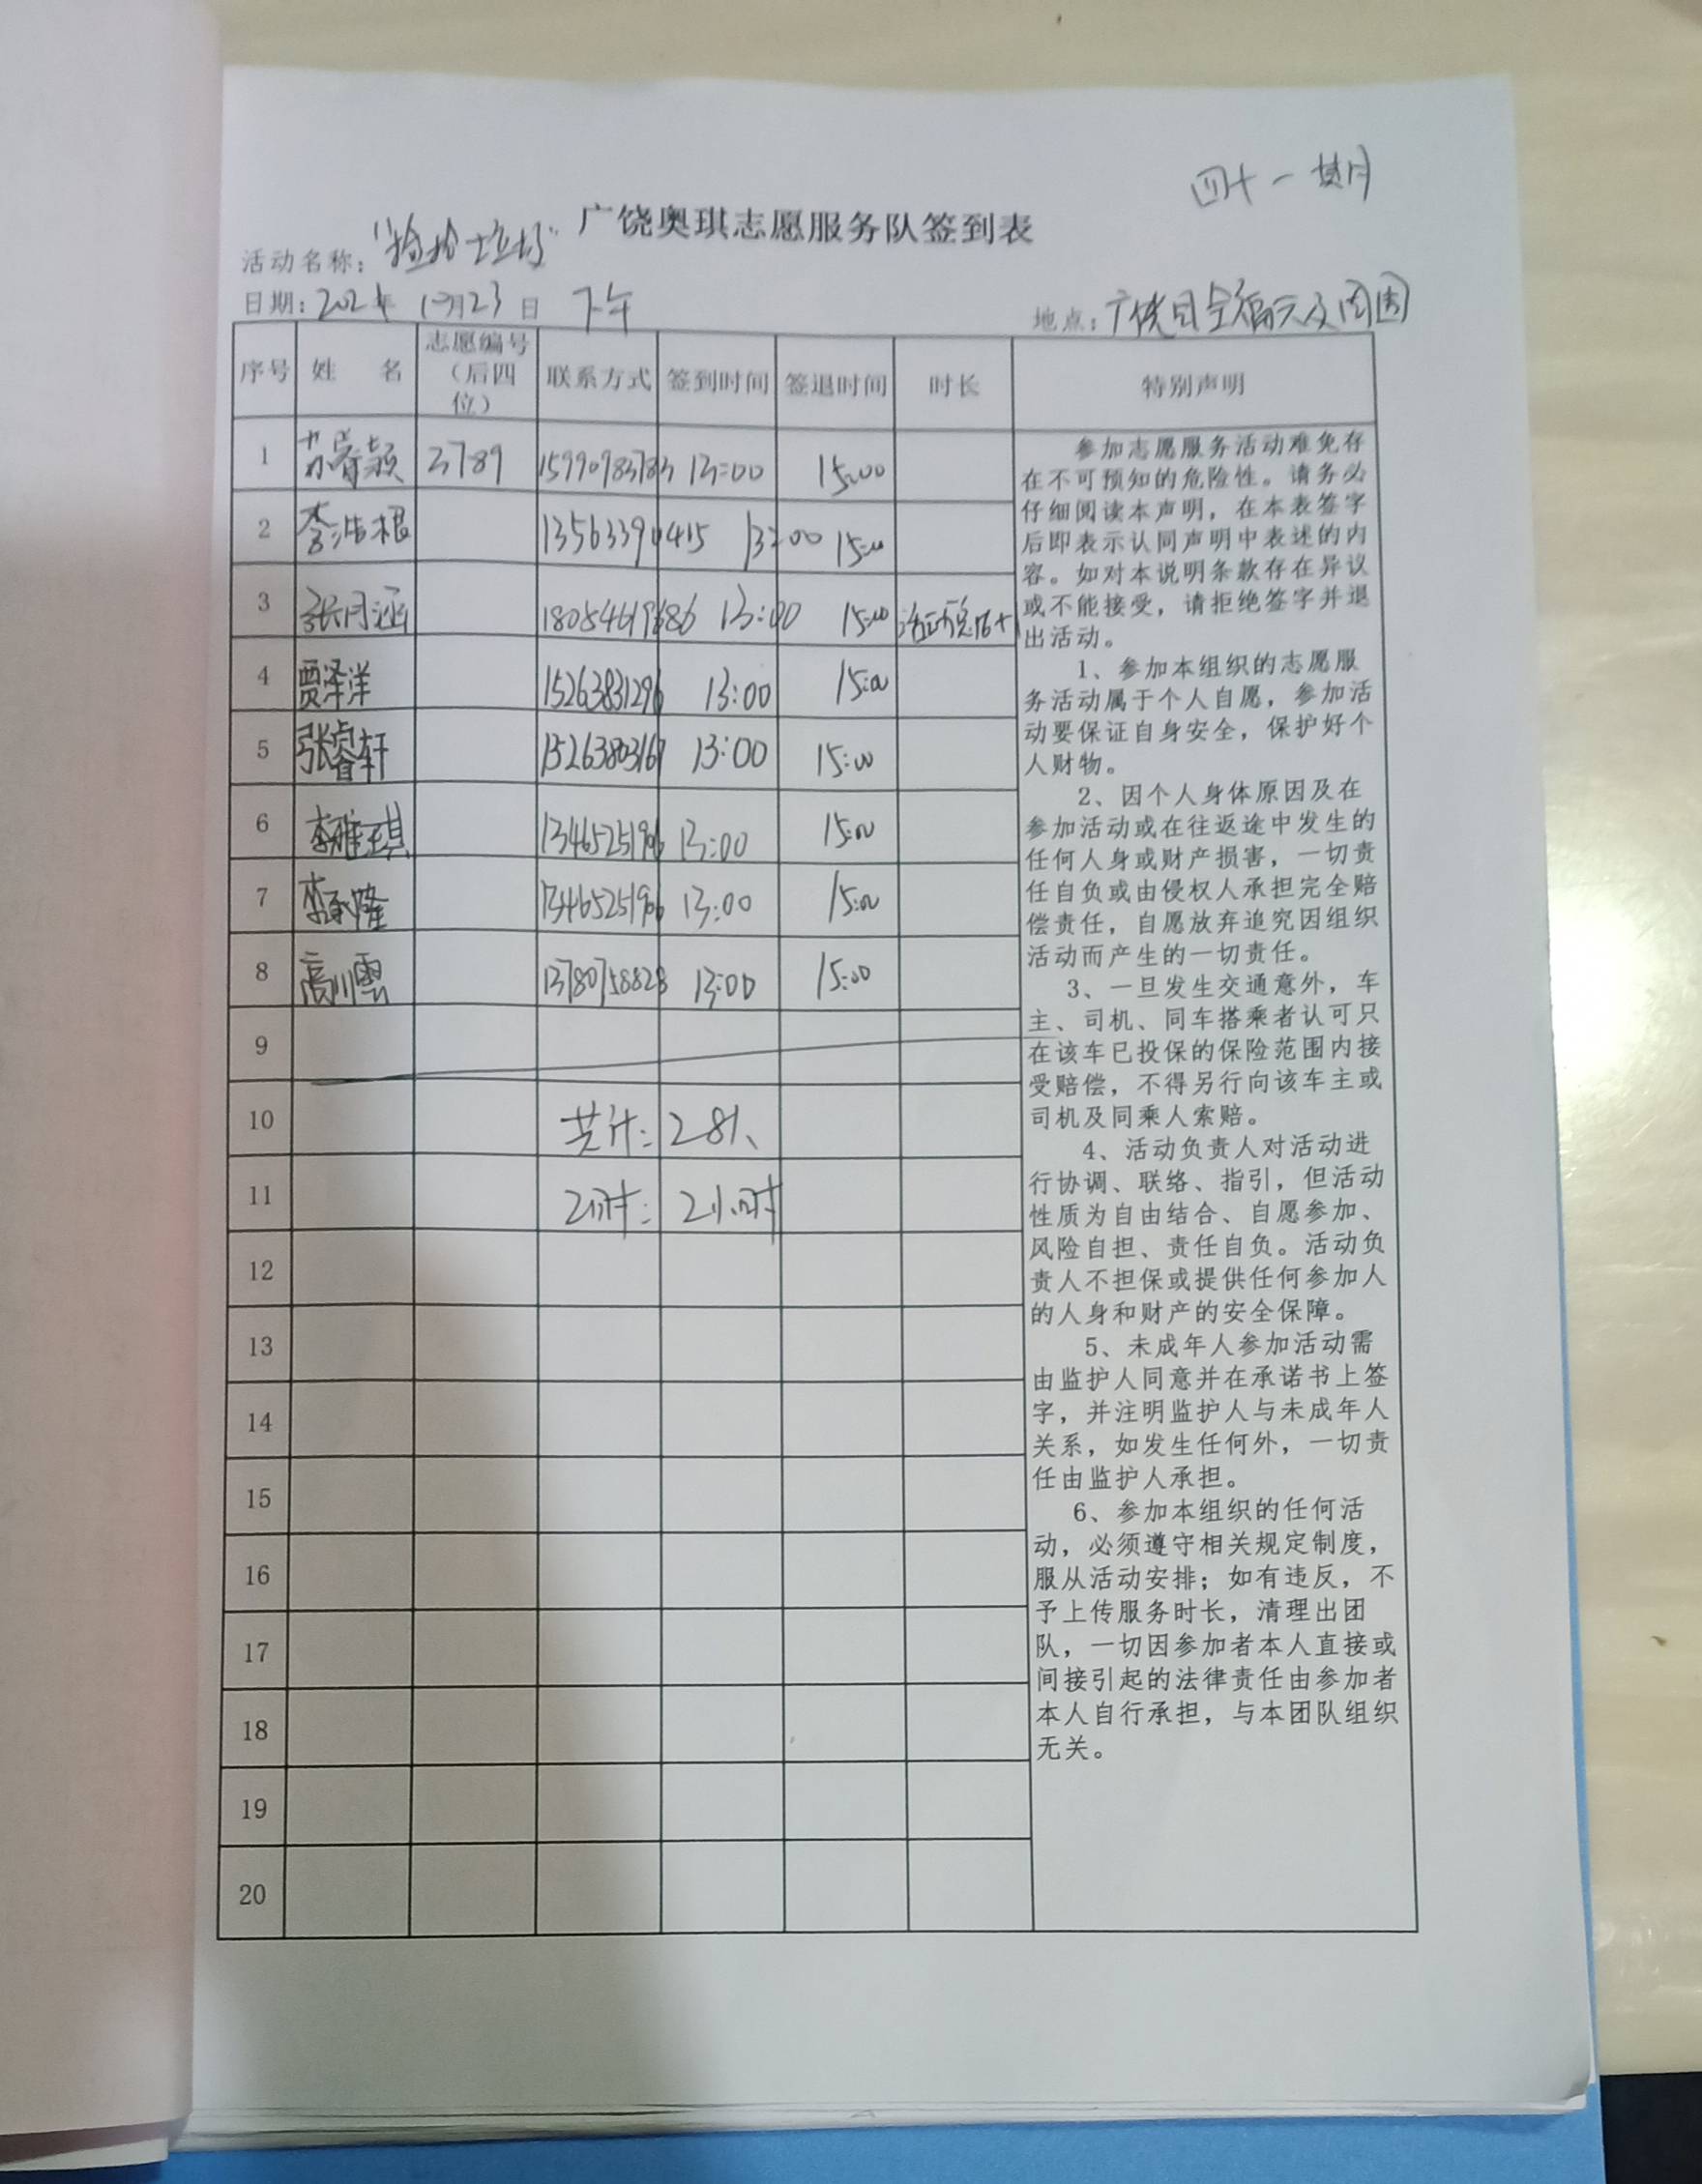 四十一期
广饶奥琪志愿服务队签到表
活动名称：“捡捡垃圾”
日期：2021年 10月23日 下午
地点：广饶及周围
序号 姓 名 志愿编号（后四位） 联系方式 签到时间 签退时间 时长 特别声明
1 苏睿颖 3789 15990783783 13:00 15:00
2 李浩根 13563390415 13:00 15:00
3 张月涵 18054619686 13:00 15:00
4 贾泽洋 15263831296 13:00 15:00
5 张睿轩 15263803167 13:00 15:00
6 李雅琪 13465251906 13:00 15:00
7 李承隆 13465251906 13:00 15:00
8 高川雲 13780758828 13:00 15:00
9
10 共计：28人
11 2小时
12
13
14
15
16
17
18
19
20
参加志愿服务活动难免存
在不可预知的危险性。请务必
仔细阅读本声明，在本表签字
后即表示认同声明中表述的内
容。如对本说明条款存在异议
或不能接受，请拒绝签字并退
出活动。
1、参加本组织的志愿服
务活动属于个人自愿，参加活
动要保证自身安全，保护好个
人财物。
2、因个人身体原因及在
参加活动或在往返途中发生的
任何人身或财产损害，一切责
任自负或由侵权人承担完全赔
偿责任，自愿放弃追究因组织
活动而产生的一切责任。
3、一旦发生交通意外，车
主、司机、同车搭乘者认可只
在该车已投保的保险范围内接
受赔偿，不得另行向该车主或
司机及同乘人索赔。
4、活动负责人对活动进
行协调、联络、指引，但活动
性质为自由结合、自愿参加、
风险自担、责任自负。活动负
责人不担保或提供任何参加人
的人身和财产的安全保障。
5、未成年人参加活动需
由监护人同意并在承诺书上签
字，并注明监护人与未成年人
关系，如发生任何外，一切责
任由监护人承担。
6、参加本组织的任何活
动，必须遵守相关规定制度，
服从活动安排；如有违反，不
予上传服务时长，清理出团
队，一切因参加者本人直接或
间接引起的法律责任由参加者
本人自行承担，与本团队组织
无关。